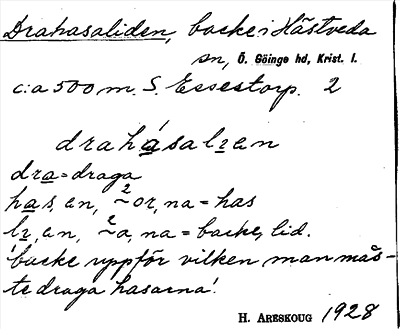 Drahasaliden, backe i Hästveda
sn, Ö. Göinge hd, Krist. l.
c:a 500 m. S. Essestorp. 2
drahásalɪen
dra = draga
has, en, ²~or, na = has
lɪ, en, ²~a, na = backe, lid.
'backe uppför vilken man mås-
te draga hasarna'.
H. ARESKOUG 1928